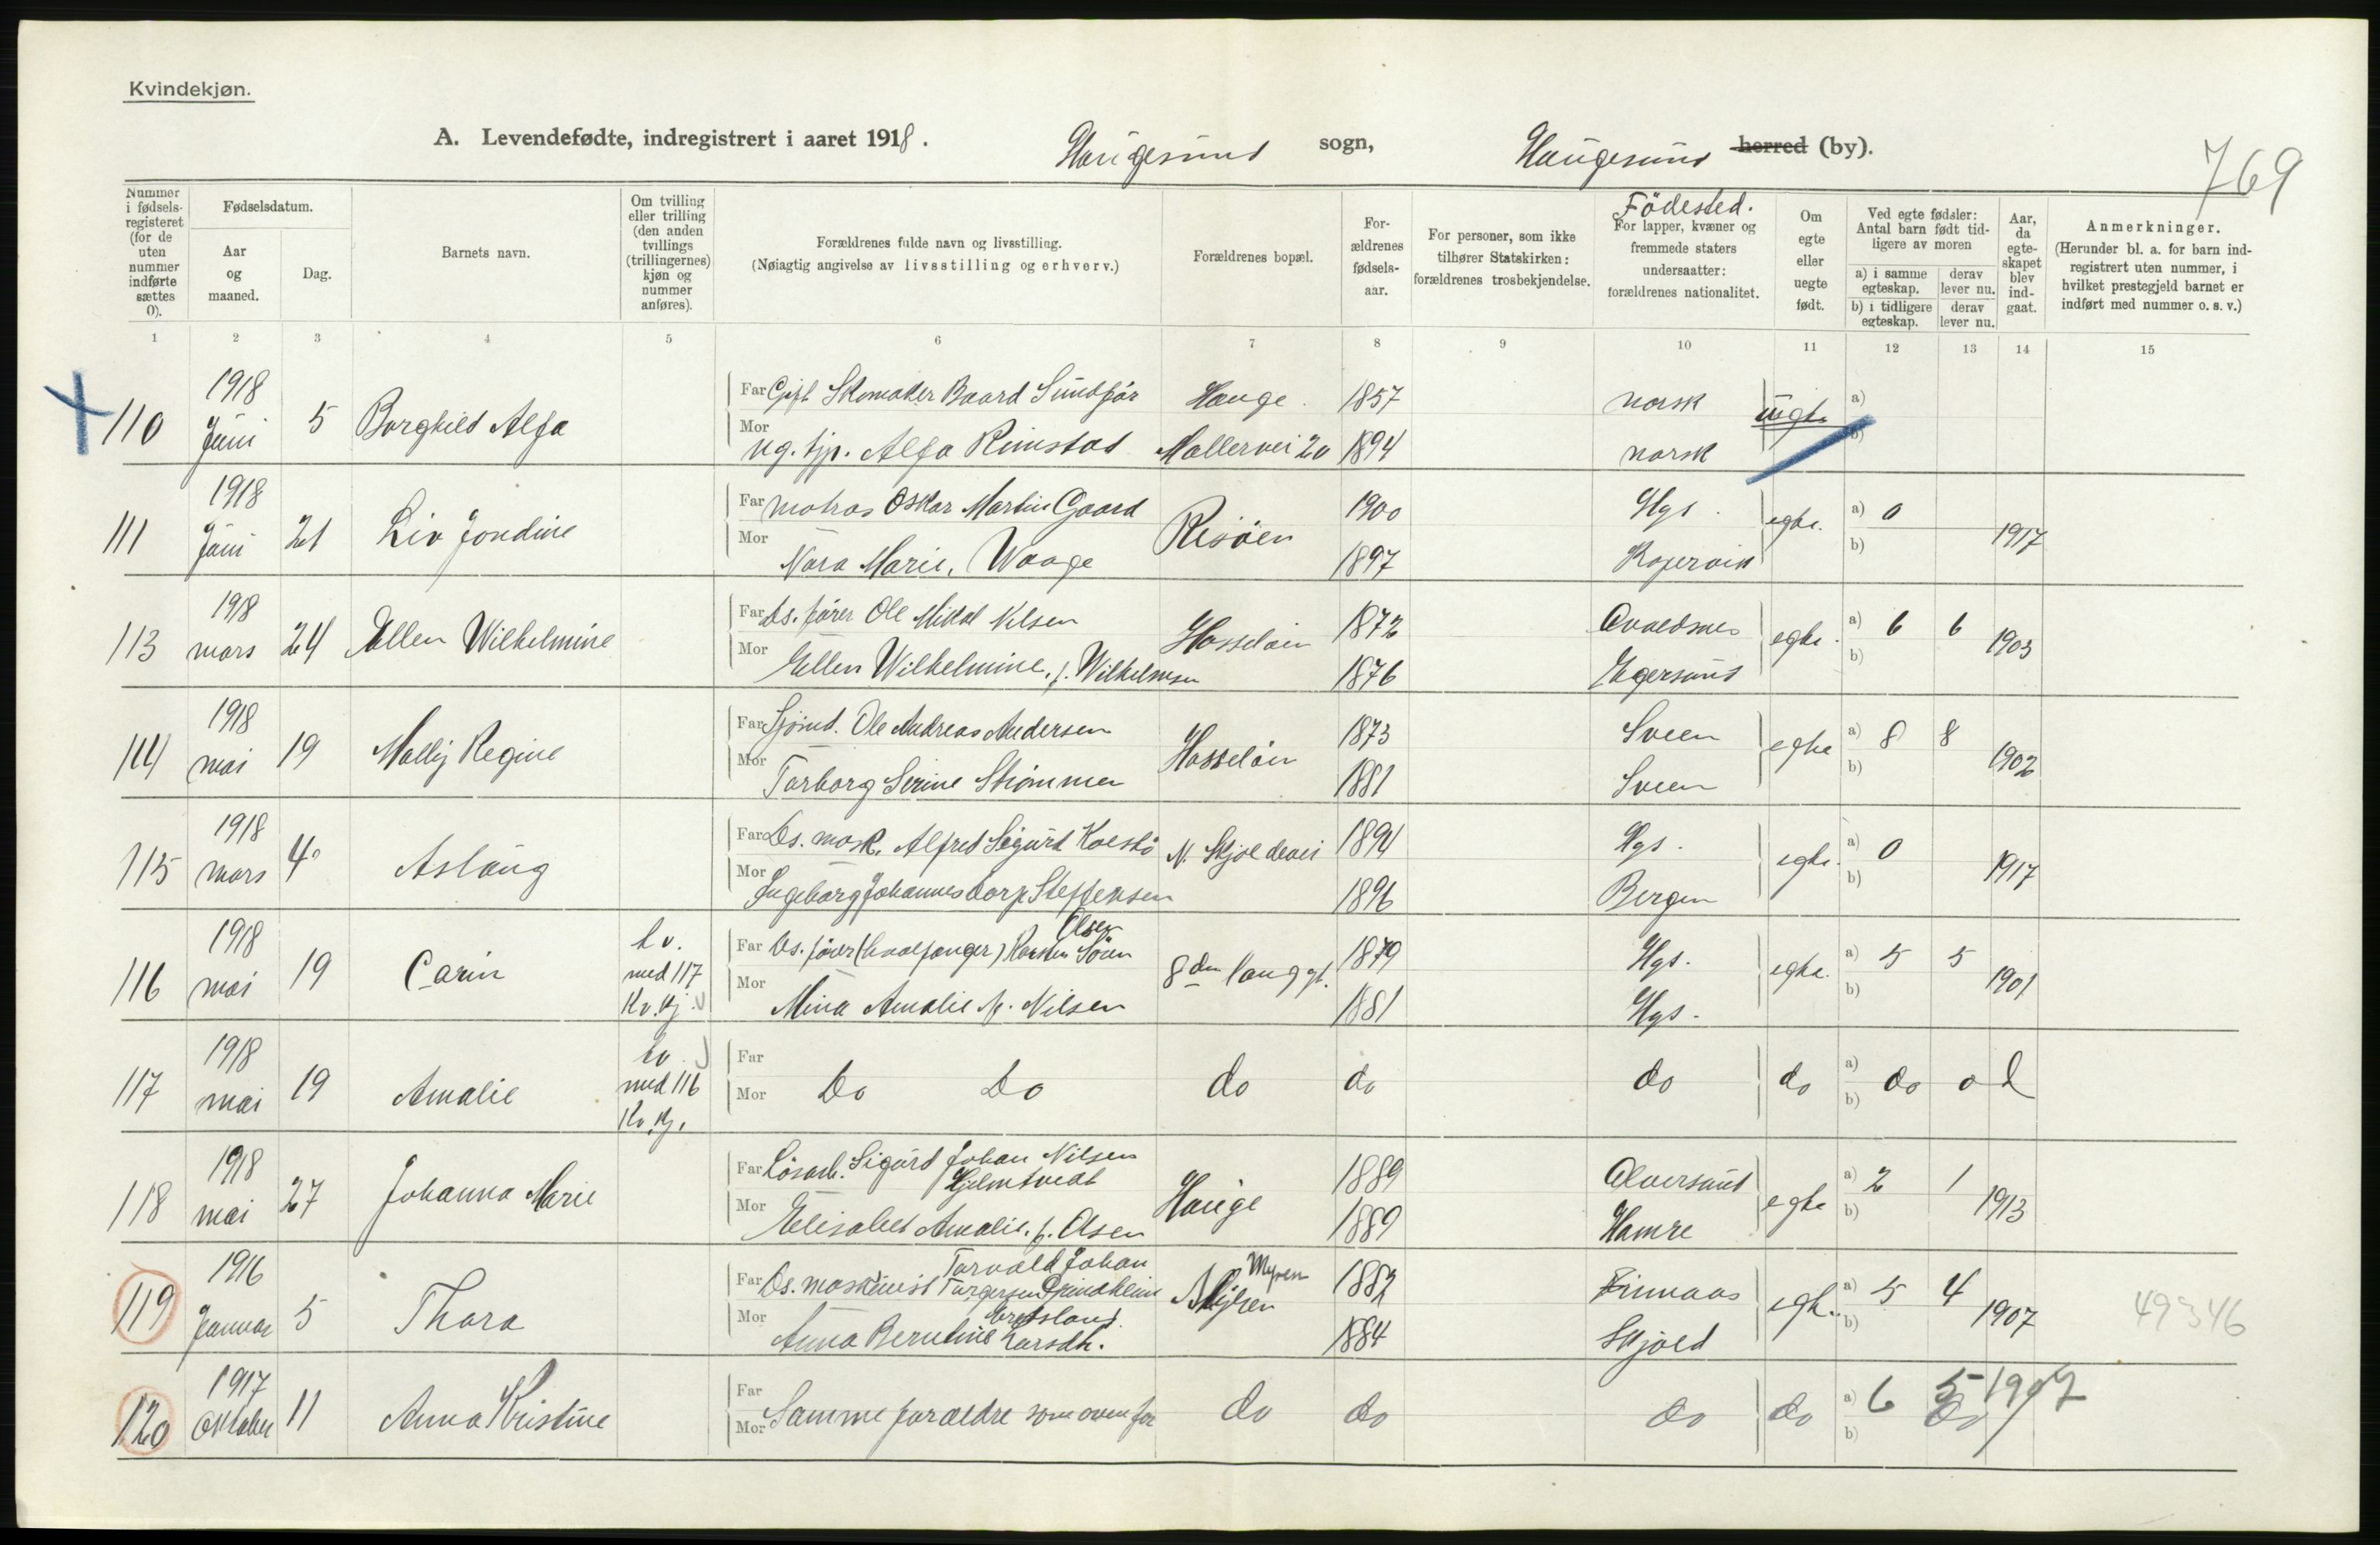 Kvindekjøn.
A. Levendefødte, indregistrert i aaret 1918.
Haugesund sogn, Haugesund herred (by).
769
Nummer i fødselsregisteret (for de uten nummer indførte sættes 0).
Fødselsdatum.
Aar og maaned.
Dag.
Barnets navn.
Om tvilling eller trilling (den anden tvillings (trillingernes) kjøn og nummer anføres).
Forældrenes fulde navn og livsstilling.
(Nøiagtig angivelse av livsstilling og erhverv.)
Forældrenes bopæl.
Forældrenes fødselsaar.
For personer, som ikke tilhører Statskirken: forældrenes trosbekjendelse.
Födested.
For lapper, kvæner og fremmede staters undersaatter: forældrenes nationalitet.
Om egte eller uegte født.
Ved egte fødsler: Antal barn født tidligere av moren
a) i samme egteskap. derav lever nu.
b) i tidligere egteskap. derav lever nu.
Aar, da egteskapet blev indgaat.
Anmerkninger.
(Herunder bl. a. for barn indregistrert uten nummer, i hvilket prestegjeld barnet er indført med nummer o. s. v.)
1 2 3 4 5 6 7 8 9 10 11 12 13 14 15
110 1918 Juni 5 Borghild Alfa
Far Gift Skomaker Baard Sundfør Hauge. 1857 norsk uegte a)
Mor ug. tjp. Alfa Rimstad Møllervei 20 1894 norsk b)
111 1918 Juni 21 Liv Jondine
Far matros Oskar Martin Gaard Risøen 1900 Hgs. egte. a) 0 1917
Mor Nora Marie, Waage 1897 Kopervik b)
113 1918 mars 24 Ellen Wilhelmine
Far Ds. fører Ole Mikal Nilsen Hasseløen 1872 Avaldsnes egte. a) 6 6 1903
Mor Ellen Wilhelmine, f. Wilhelmsen 1876 Egersund b)
114 1918 mai 19 Mally Regine
Far Sjømd. Ole Andreas Andersen Hasseløen 1873 Sveen egte a) 8 8 1902
Mor Torborg Serine Strømmen 1881 Sveen b)
115 1918 mars 4. Aslaug
Far Ds. mask. Alfred Sigurd Kalstø N. Skjoldevei 1894 Hgs. egte. a) 0 1917
Mor Ingeborg Johannes Steffensen 1896 Bergen b)
116 1918 mai 19 Carin tv. med 117 Kv. kj.
Far Ds. fører (hvalfanger) Karsten Søren Olsen 8de langgt. 1879 Hgs. egte. a) 5 5 1901
Mor Mina Amalie f. Nilsen 1881 Hgs. b)
117 1918 mai 19 Amalie tv. med 116 Kv. kj.
Far a)
Mor Do Do do do do do do b)
118 1918 mai 27 Johanna Marie
Far Løsarb. Sigurd Johan Nilsen Hjelmtvedt Hauge 1889 Alversund egte a) 2 1 1913
Mor Elisabet Amalie. f. Olsen 1889 Hamre b)
119 1916 Januar 5 Thora
Far Ds. maskinist Torvald Johan Torgersen Grindheim Myren 1882 Finnaas egte. a) 5 4 1907 49346
Mor Anna Berntine Larsdtr. 1884 Skjold b)
120 1917 Oktober 11 Anna Kristine
Far a) 6 5 1907
Mor Samme forældre som ovenfor do do do do do b)